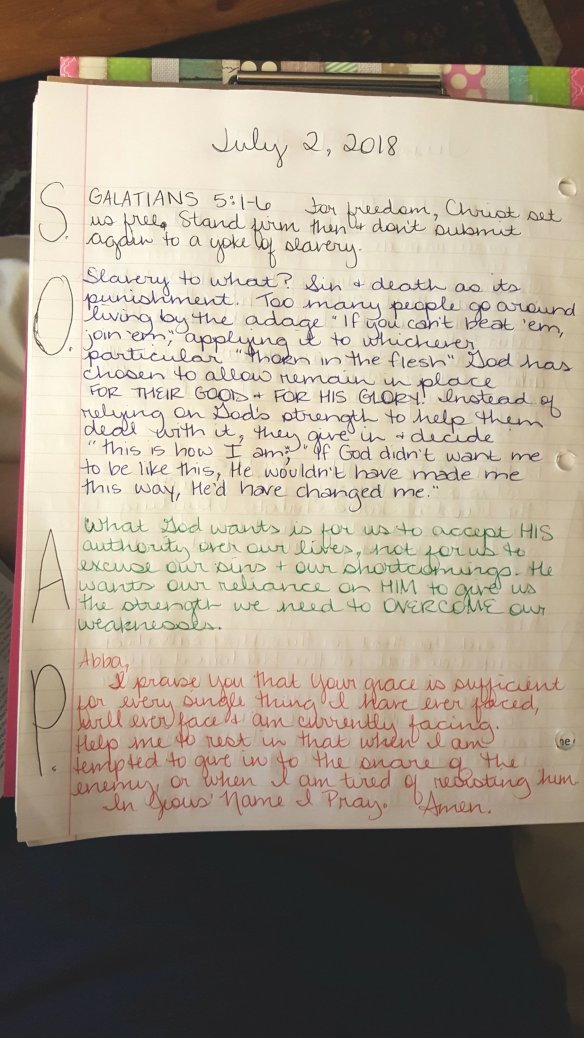 July 2, 2018
S. GALATIANS 5:1-6 For freedom, Christ set
us free. Stand firm then & don't submit
again to a yoke of slavery.
O. Slavery to what? Sin + death as its
punishment. Too many people go around
living by the adage "If you can't beat 'em,
join 'em," applying it to whichever
particular "thorn in the flesh" God has
chosen to allow remain in place
FOR THEIR GOOD + FOR HIS GLORY! Instead of
relying on God's strength to help them
deal with it, they give in + decide
"this is how I am;" "If God didn't want me
to be like this, He wouldn't have made me
this way, He'd have changed me."
A What God wants is for us to accept HIS
authority over our lives, not for us to
excuse our sins + our shortcomings. He
wants our reliance on HIM to give us
the strength we need to OVERCOME our
weaknesses.
P. Abba,
I praise You that Your grace is sufficient
for every single thing I have ever faced,
will ever face & am currently facing.
Help me to rest in that when I am
tempted to give in to the snare of the
enemy, or when I am tired of resisting him
In Jesus' Name I Pray. Amen.